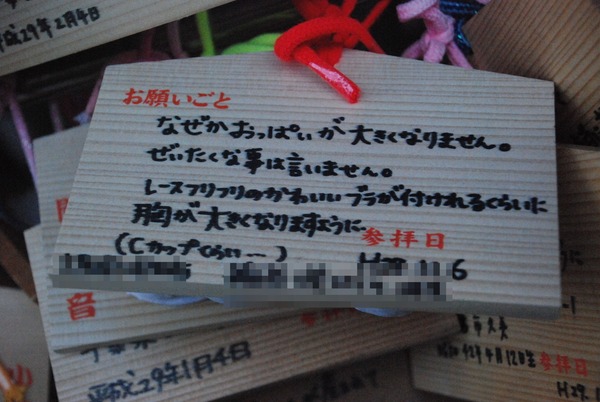 平成29年2月4日
お願いごと
なぜかおっぱいが大きくなりません。
ぜいたくな事は言いません。
レースフリフリのかわいいブラが付けれるくらいに
胸が大きくなりますように
参拝日
(Cカップくらい…)
H29.11.6
音
平成29年1月4日
4月12日生
参拝日
H29.1